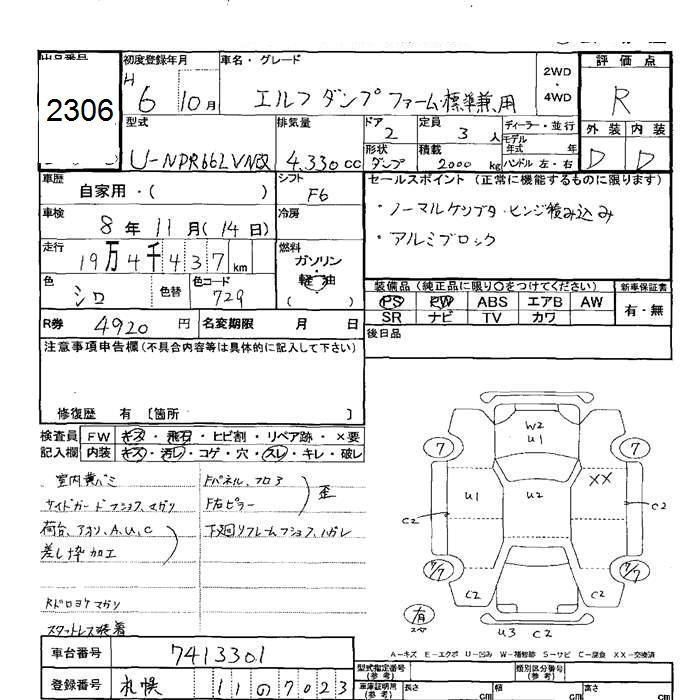 2306
初度登録年月
H 6 10月
車名・グレード
エルフダンプ ファーム標準兼用
2WD
・
4WD
評価点
R
外装 内装
D D
型式
U-NPR66LVNEQ
排気量
4.330 cc
ドア
2
定員
3 人
形状
ダンプ
積載
2000 kg
ディーラー・並行
モデル
年式 年
ハンドル 左・右
車歴
自家用・( )
シフト
F6
セールスポイント (正常に機能するものに限ります)
・ノーマルケツブタ・ヒンジ積み込み
・アルミブロック
車検
8年 11月(14日)
冷房
走行
19万4千437 km
燃料
ガソリン
軽油
( )
色
シロ
色替
色コード
729
装備品 (純正品に限り○をつけてください)
PS PW ABS エアB AW
SR ナビ TV カワ
新車保証書
有・無
R券 4920 円
名変期限 月 日
後日品
注意事項申告欄 (不具合内容等は具体的に記入して下さい)
修復歴 有 〔箇所 〕
検査員
記入欄
FW キズ・飛石・ヒビ割・リペア跡・×要
内装 キズ・汚レ・コゲ・穴・スレ・キレ・破レ
室内黄バミ
サイドガードフショク、マガリ
荷台、アオリ、A、U、C
差し枠加工
Rドロヨケマガリ
スタットレス装着
Fパネル、フロア
F右ピラー
歪
下廻リフレームフショク、ハガレ
W2
U1
7
7
U1
U2
XX
C2
C2
7/7
7/7
C2
C2
有
スペア
U3 C2
A-キズ E-エクボ U-凹み W-補修跡 S-サビ C-腐食 XX-交換済
車台番号
7413301
登録番号
札幌 11 の 7023
型式指定番号
(参考)
類別区分番号
(参考)
車庫証明用
(参考)
長さ cm
幅 cm
高さ cm